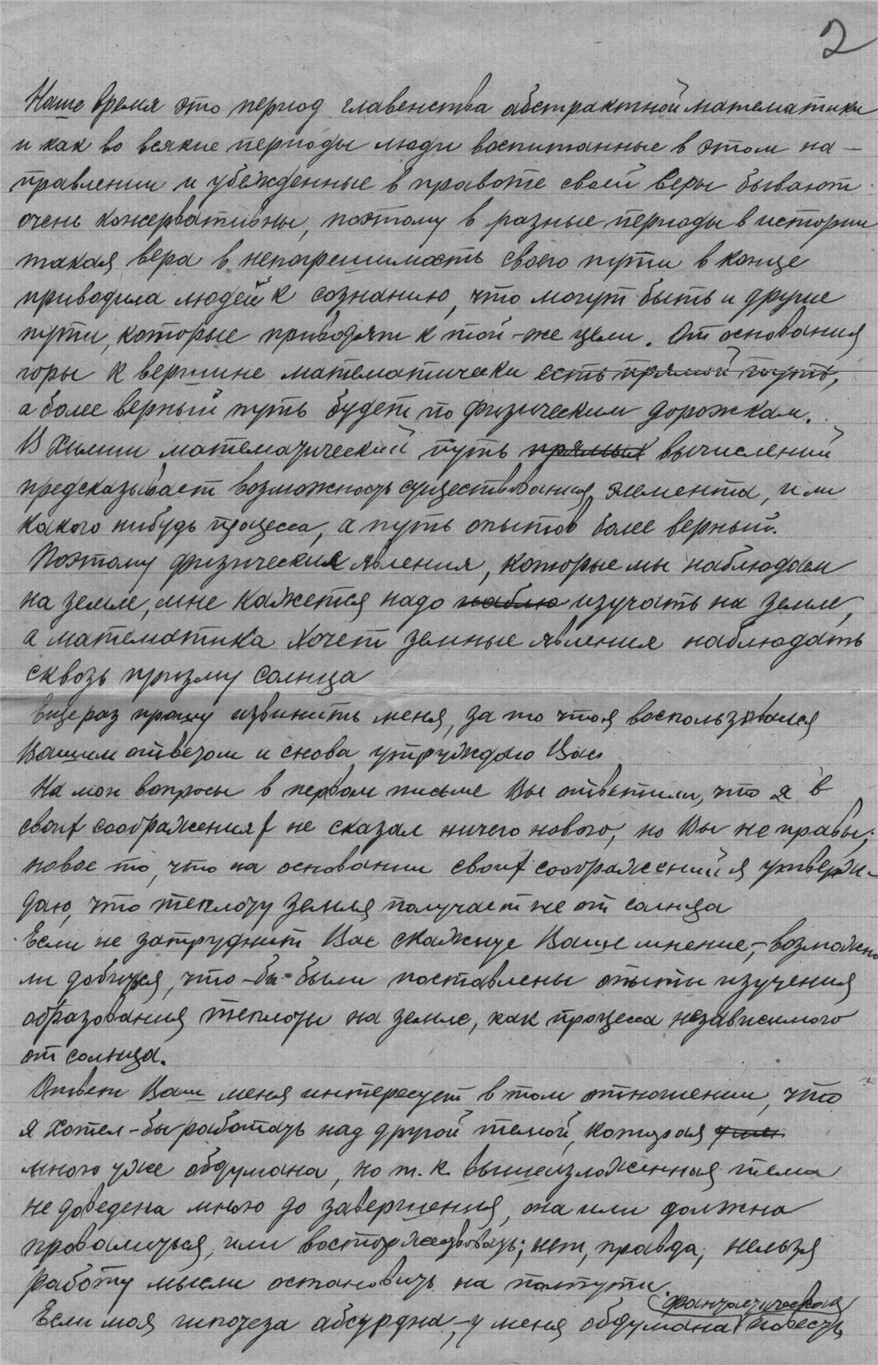 2
Наше время это период главенства абстрактной математики
и как во всякие периоды люди воспитанные в этом на-
правлении и убежденные в правоте своей веры бывают
очень консервативны, поэтому в разные периоды в истории
такая вера в непогрешимость своего пути в конце
приводила людей к сознанию, что могут быть и другие
пути, которые приводят к той-же цели. От основания
горы к вершине математически есть прямой путь,
а более верный путь будет по физическим дорожкам.
В химии математический путь прямых вычислений
предсказывает возможность существования элемента, или
какого нибудь процесса, а путь опытов более верный.
Поэтому физические явления, которые мы наблюдаем
на земле, мне кажется надо наблю изучать на земле,
а математика хочет земные явления наблюдать
сквозь призму солнца
Еще раз прошу извинить меня, за то что я воспользовался
Вашим ответом и снова утруждаю Вас
На мои вопросы в первом письме Вы ответили, что я в
своих соображениях не сказал ничего нового, но Вы не правы;
новое то, что на основании своих соображений я утверж-
даю, что теплоту земля получает не от солнца
Если не затруднит Вас скажите Ваше мнение,- возможно
ли добиться, что-бы были поставлены опыты изучения
образования теплоты на земле, как процесса независимого
от солнца.
Ответ Ваш меня интересует в том отношении, что
я хотел-бы работать над другой темой, которая
много уже обдумана, но т.к. вышеизложенная тема
не доведена мною до завершения, она или должна
провалиться, или восторжествовать; нет, правда, нельзя
работу мысли остановить на полпути.
фантастическая
Если моя гипотеза абсурдна,- у меня обдумана повесть